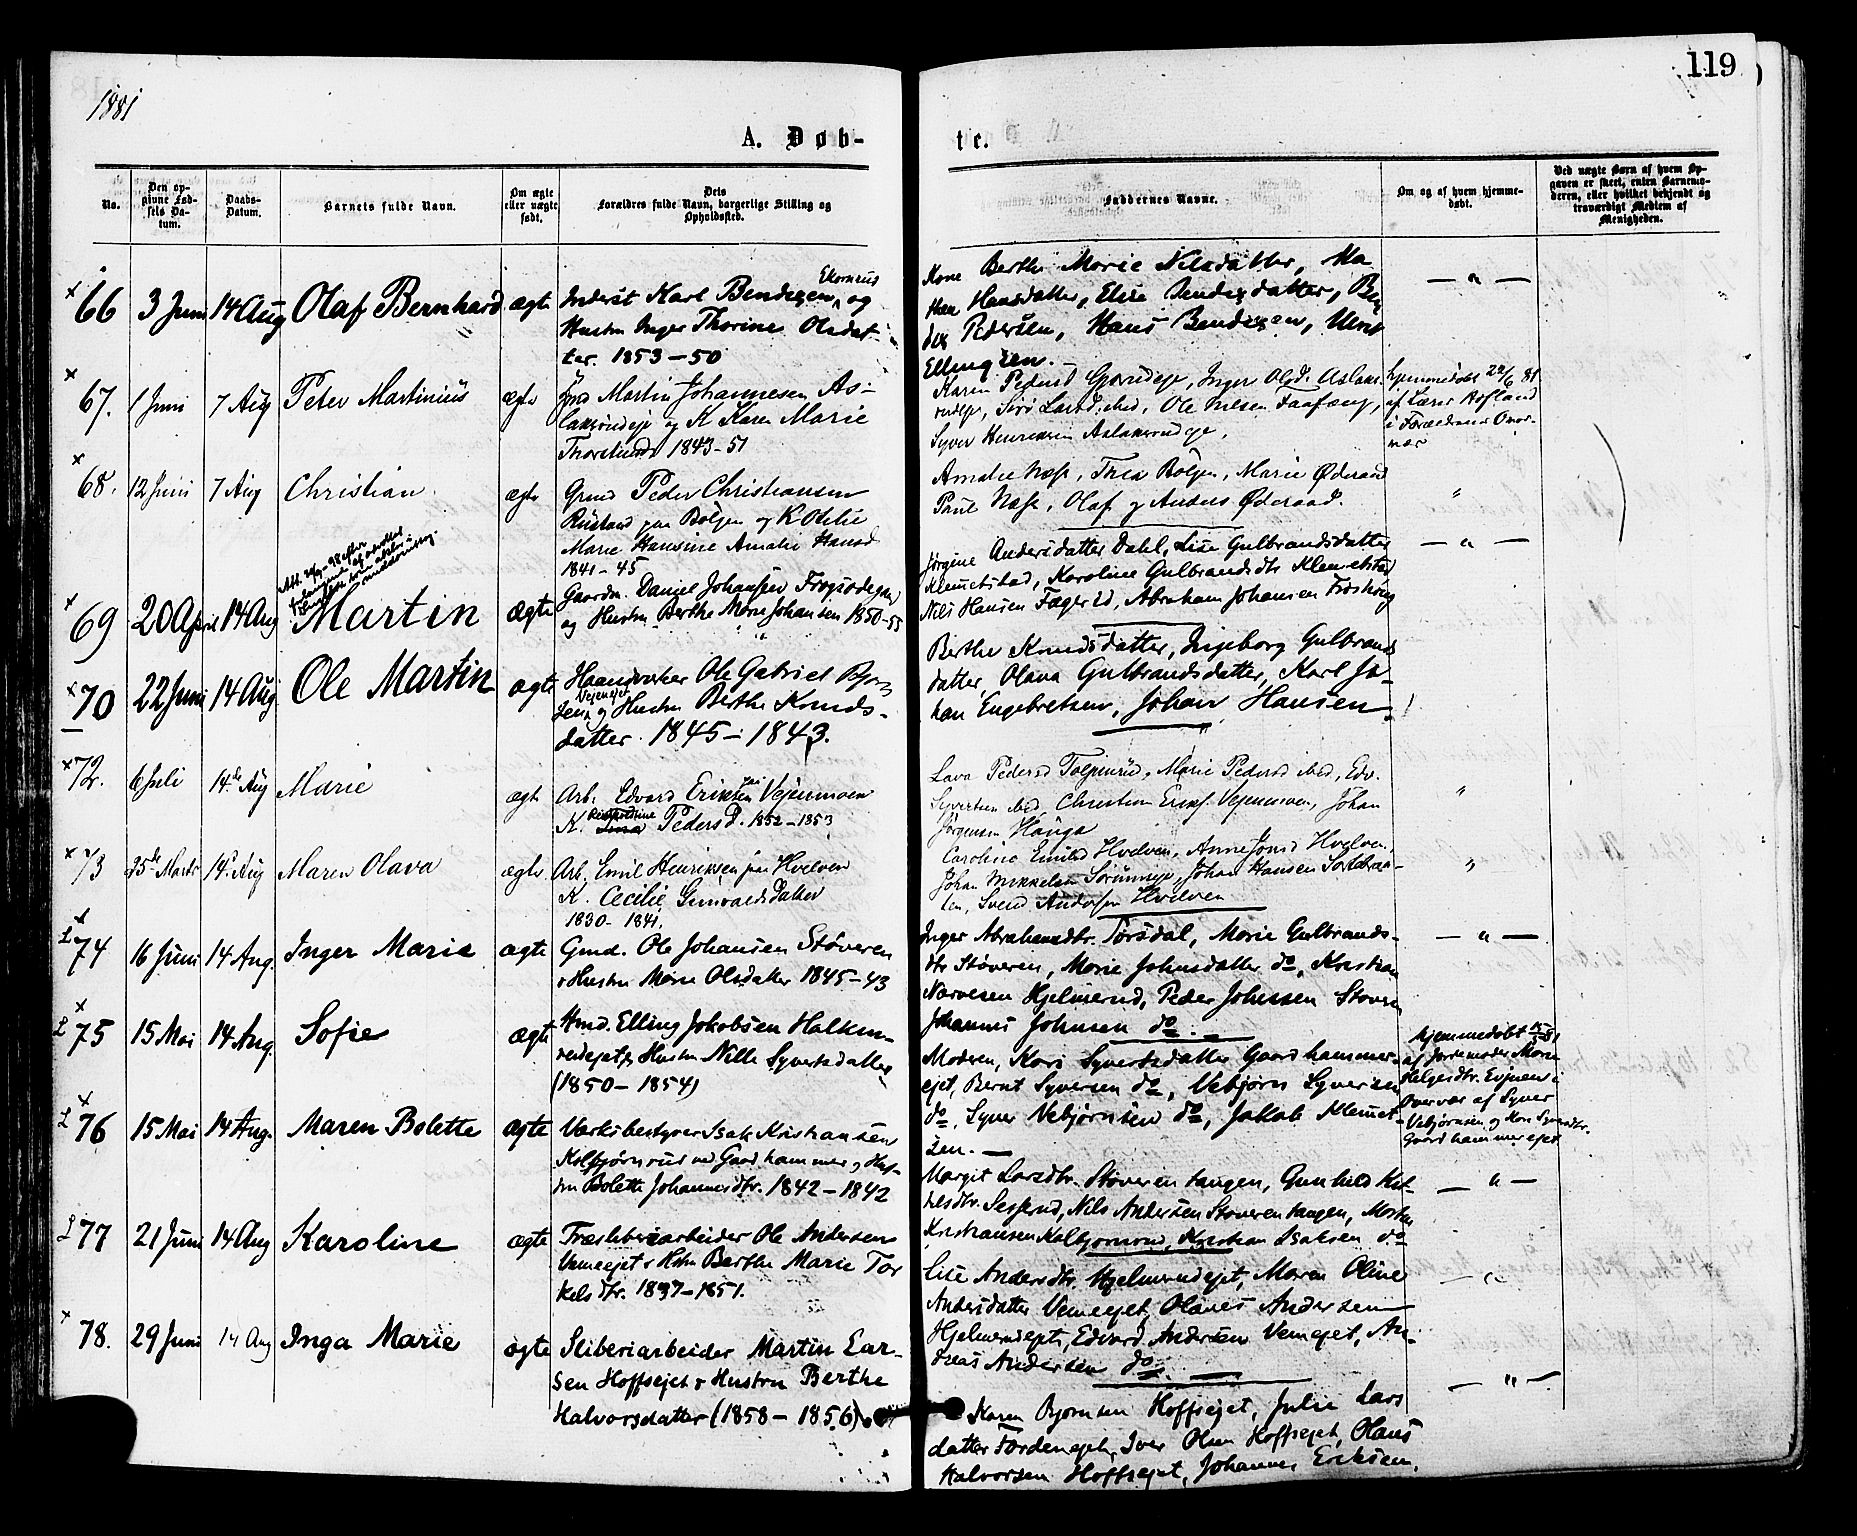 119
1881
A. Døb-
te.
No.
Den op-
givne Fød-
sels Da-
tum.
Daabs-
Datum.
Barnets fulde Navn.
Om ægte
eller uægte
født.
Dets
Forældres fulde Navn, borgerlige Stilling og
Opholdssted.
Faddernes Navne.
Om og af hvem hjemme-
døbt.
Ved uægte Børn af hvem Op-
gaven er skeet, enten Barnemo-
deren, eller hvilket bekjendt og
troværdigt Medlem af
Menigheden.
x 66 3 Juni 14 Aug Olaf Bernhard ægte
Inderst Karl Bendixen, og
Hustru Inger Thorine Olsdat-
ter. 1853-50
Kone Berthe Marie Nilsdatter, Ma-
Hansdatter, Elise Bendixdatter, Ben
dix Pedersen, Hans Bendixen,
Ellingsen.
— " —
x 67. 1 Juni 7 Aug Peter Martinius ægte
Martin Johannesen As-
og K Karen Marie
1843-51
Karen Pedersd Inger Olsd.
Siri Larsd. ibid, Ole Nilsen
Syver Henriksen
hjemmedøbt 22/6 81
af Lærer Hofland
i Forældrenes Overvær
x 68. 12 Juni 7 Aug Christian ægte
Grmd Peder Christiansen
Rustand paa Bølgen og K Otelie
Marie Hansine Amalie Hansd
1841-45
Amalie Næss, Thea Bølgen, Marie Øderaad
Paul Næss, Olaf og Anders Øderaad.
"
x 69 20 April 14 Aug Martin ægte
Gaardm. Daniel Johansen
og Hustru Berthe Marie Johansen 1850-55
Jørgine Andersdatter Dahl, Lise Gulbrandsdatter
Klemetstad, Karoline Gulbrandsdtr Klemetstad
Niels Hansen Abraham Johansen
— " —
x 70 22 Juni 14 Aug Ole Martin ægte
Haandverker Ole Gabriel
og Hustru Berthe Knuds-
datter 1845-1843.
Berthe Knudsdatter, Ingeborg Gulbrands
datter, Olava Gulbrandsdatter, Karl Jo-
han Engebretsen, Johan Hansen.
x 72. 6 Juli 14de Aug Marie ægte
Arb. Edvard Eriksen Vejenmoen
K. Pedersd. 1852-1853
Lava Pedersd Marie Pedersd ibid, Edv.
Syvertsen ibid, Christian Eriks. Vejenmoen, Johan
Jørgensen Hauga
"
x 73 25de Marts 14de Aug Maren Olava ægte
Arb. Emil Henriksen paa Hvelven
K. Cecilie
1830-1841.
Caroline Emilsd Hvelven, Anne Jonsd Hvelven,
Johan Mikkelsen Johan Hansen
Svend Andersen Hvelven
"
x 74 16 Juni 14 Aug. Inger Marie ægte
Gmd. Ole Johansen Støveren
& Hustru Marie Olsdatter 1845-43
Inger Abrahamsdtr. Torsdal, Marie Gulbrands-
dtr Støveren, Marie Johnsdatter do, Kristian
Narvesen Hjelmerud, Peder Johnsen Støveren
Johannes Johnsen do.
— " —
x 75 15 Mai 14 Aug. Sofie ægte
Hmd. Elling Jakobsen
Hustru Nille Syversdatter
(1850-1854)
Moderen, Kari Syversdatter Gaardhammer-
ejet, Bernt Syversen do, Vebjørn Syversen
do, Syver Vebjørnsen do, Jakob Klemet-
sen. —
Hjemmedøbt
af Jordemoder Marie
Helgesdtr. i
Overvær af Syver
Vebjørnsen og Kari Syversdtr.
Gaardhammerejet
x 76 15 Mai 14 Aug. Maren Bolette ægte
Værksbestyrer Isak Kristiansen
Kolbjørnrud ved Gaardhammer og Hus-
tru Bolette Johannesdtr. 1842-1842
Margit Larsdtr. Støverentangen, Gunhild
Nils Andersen Støverentangen, Morten
Kristiansen Kolbjørnrud, Kristian Isaksen do
— " —
77 21 Juni 14 Aug Karoline ægte
Træsliberiarbeider Ole Andersen
Vemeejet & Hstru Berthe Marie Tor
kelsdtr. 1837-1851.
Lise Andersdtr. Hjelmerudejet, Maren Oline
Andersdatter Vemeejet, Olaves Andersen
Hjelmerudejet, Edvard Andersen Vemeejet, An-
dreas Andersen do.
— " —
x 78. 29 Juni 14 Aug Inga Marie ægte
Sliberiarbeider Martin Lar-
sen Hoffsejet & Hustru Berthe
Halvorsdatter (1858-1856).
Karen Bjørnsen Hoffsejet, Julie Lars
datter Iver Olsen Hoffsejet, Olaus
Halvorsen Hoffsejet, Johannes Eriksen.
— " —